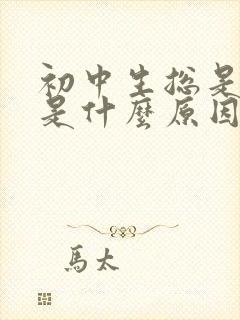 初中生总是
是什麼原因
馬太